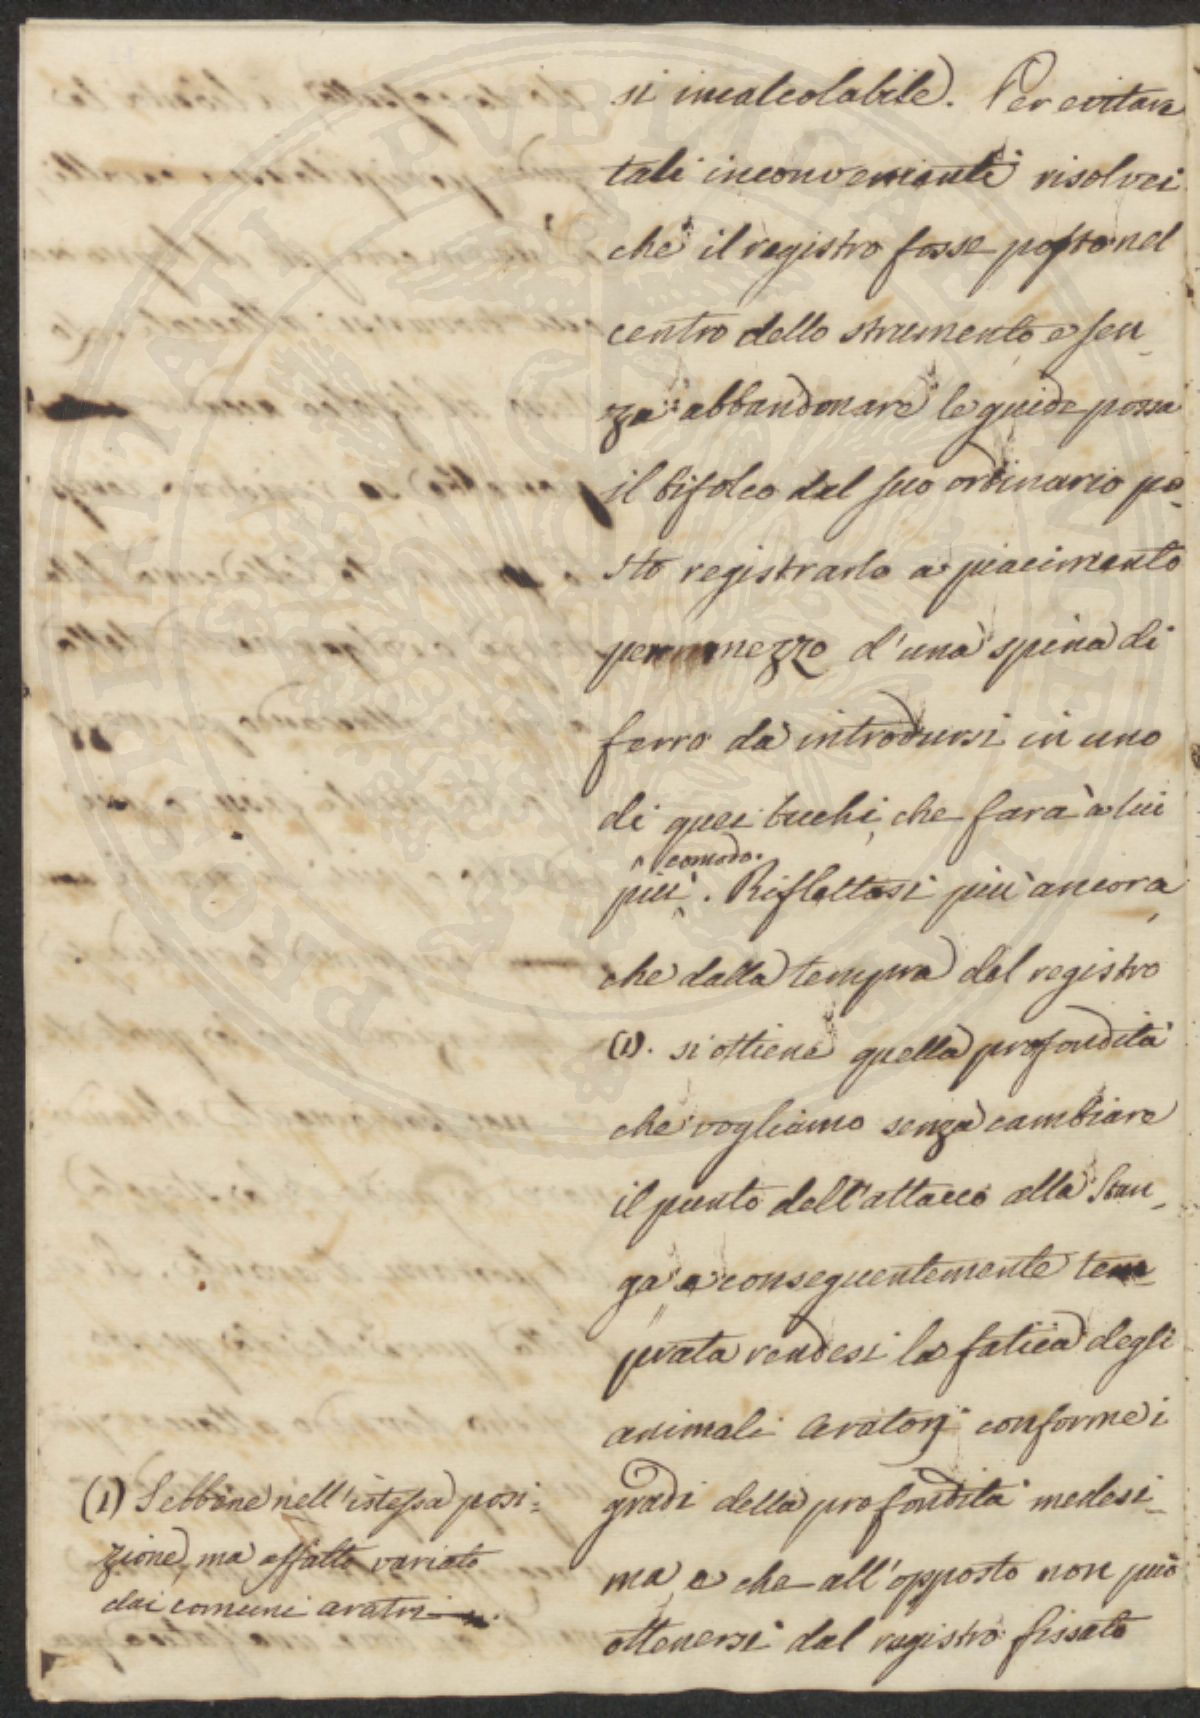 si incalcolabile. Per evitare
tali inconvenienti risolvei
che il registro fosse posto nel
centro dello strumento e sen-
za abbandonare le guide possa
il bifolco dal suo ordinario po-
sto registrarlo a piacimento
per mezzo d'una spina di
ferro da introdursi in uno
di quei buchi, che farà a lui
comodo.
più. Riflettasi più ancora,
che dalla tempra del registro
(1). si ottiene quella profondità
che vogliamo senza cambiare
il punto dell'attacco alla Stan-
ga e conseguentemente tem-
prata rendesi la fatica degli
animali aratorj conforme i
gradi della profondità medesi-
ma e che all'opposto non può
ottenersi dal registro fissato
(1) Sebbene nell'istessa posi-
zione, ma affatto variato
dai comuni aratri
PROSPERITATI PUBLICAE AUGENDAE